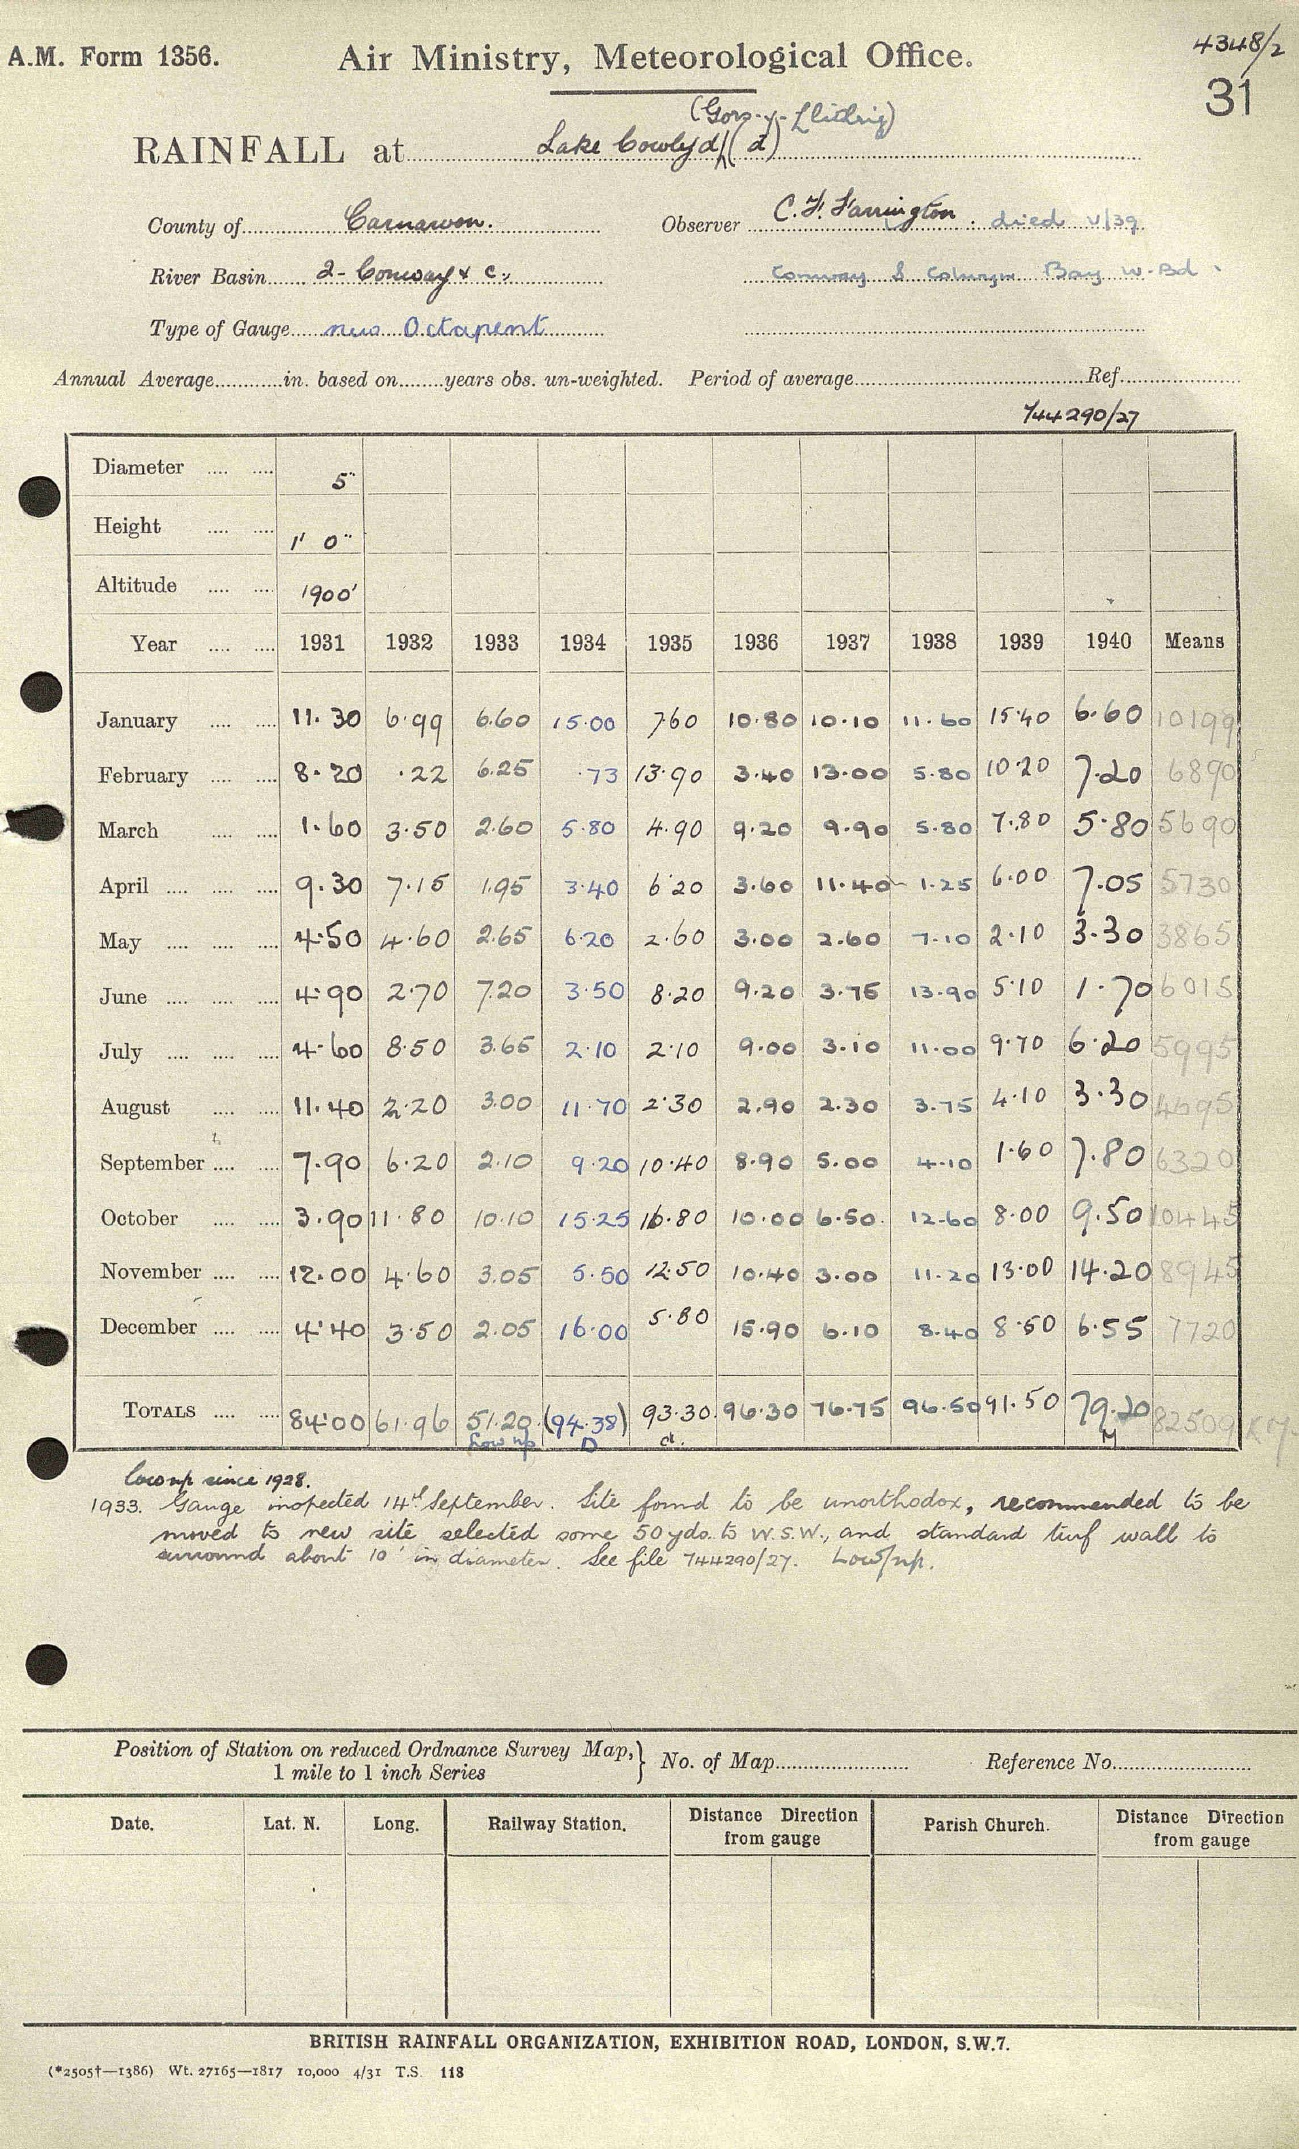 4348/2
A.M. Form 1356. Air Ministry, Meteorological Office.
31
(Gors-y-Llithrig)
RAINFALL at Lake Cowlyd (d)
County of Carnarvon. Observer C.F. Farrington. died V/39
River Basin 2-Conway & c., Conway & Colwyn Bay W.Bd.
Type of Gauge new Octapent
Annual Average in. based on years obs. un-weighted. Period of average Ref.
744290/27
Diameter 5"
Height 1' 0"
Altitude 1900'
Year 1931 1932 1933 1934 1935 1936 1937 1938 1939 1940 Means
January 11.30 6.99 6.60 15.00 7.60 10.80 10.10 11.60 15.40 6.60 10199
February 8.20 .22 6.25 .73 13.90 3.40 13.00 5.80 10.20 7.20 6890
March 1.60 3.50 2.60 5.80 4.90 9.20 9.90 5.80 7.80 5.80 5690
April 9.30 7.15 1.95 3.40 6.20 3.60 11.40 1.25 6.00 7.05 5730
May 4.50 4.60 2.65 6.20 2.60 3.00 2.60 7.10 2.10 3.30 3865
June 4.90 2.70 7.20 3.50 8.20 9.20 3.75 13.90 5.10 1.70 6015
July 4.60 8.50 3.65 2.10 2.10 9.00 3.10 11.00 9.70 6.20 5995
August 11.40 2.20 3.00 11.70 2.30 2.90 2.30 3.75 4.10 3.30 4695
September 7.90 6.20 2.10 9.20 10.40 8.90 5.00 4.10 1.60 7.80 6320
October 3.90 11.80 10.10 15.25 16.80 10.00 6.50 12.60 8.00 9.50 10445
November 12.00 4.60 3.05 5.50 12.50 10.40 3.00 11.20 13.00 14.20 8945
December 4.40 3.50 2.05 16.00 5.80 15.90 6.10 8.40 8.50 6.55 7720
TOTALS 84.00 61.96 51.20 (94.38) 93.30 96.30 76.75 96.50 91.50 79.20 82509
Low np D M
Low np since 1928.
1933. Gauge inspected 14th September. Site found to be unorthodox, recommended to be
moved to new site selected some 50 yds. to W.S.W., and standard turf wall to
surround about 10' in diameter. See file 744290/27. Low/np.
Position of Station on reduced Ordnance Survey Map,} No. of Map Reference No.
1 mile to 1 inch Series
Date. Lat. N. Long. Railway Station. Distance Direction from gauge Parish Church. Distance Direction from gauge
BRITISH RAINFALL ORGANIZATION, EXHIBITION ROAD, LONDON, S.W.7.
(*2505†—1386) Wt. 27165—1817 10,000 4/31 T.S. 118